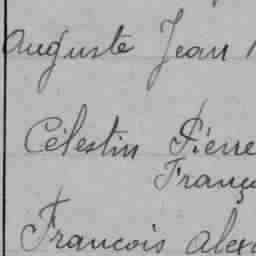 Auguste Jean
Célestin Pierre
Franç
François Alex